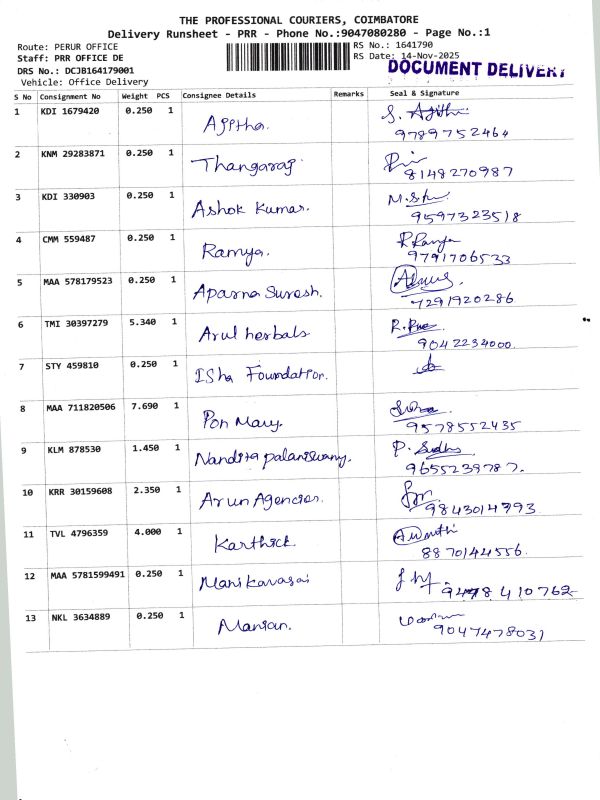 THE PROFESSIONAL COURIERS, COIMBATORE
Delivery Runsheet - PRR - Phone No.:9047080280 - Page No.:1
Route: PERUR OFFICE RS No.: 1641790
Staff: PRR OFFICE DE RS Date: 14-Nov-2025
DRS No.: DCJB164179001 DOCUMENT DELIVERY
Vehicle: Office Delivery
S No Consignment No Weight PCS Consignee Details Remarks Seal & Signature
1 KDI 1679420 0.250 1 Ajitha. S. Ajitha
9789752464
2 KNM 29283871 0.250 1 Thangaraj
8148270987
3 KDI 330903 0.250 1 Ashok Kumar.
9597323518
4 CMM 559487 0.250 1 Ramya. R Ramya
9791706533
5 MAA 578179523 0.250 1 Aparna Suresh.
7291920286
6 TMI 30397279 5.340 1 Arul herbals
9042234000.
7 STY 459810 0.250 1 ISha Foundation.
8 MAA 711820506 7.690 1 Pon Mary.
9578552435
9 KLM 878530 1.450 1 Nandita palaniswamy.
9655239787.
10 KRR 30159608 2.350 1 Arun Agencies.
9843014993
11 TVL 4796359 4.000 1 Karthick
8870144556.
12 MAA 5781599491 0.250 1 Manikavasai
13 NKL 3634889 0.250 1
9047478031